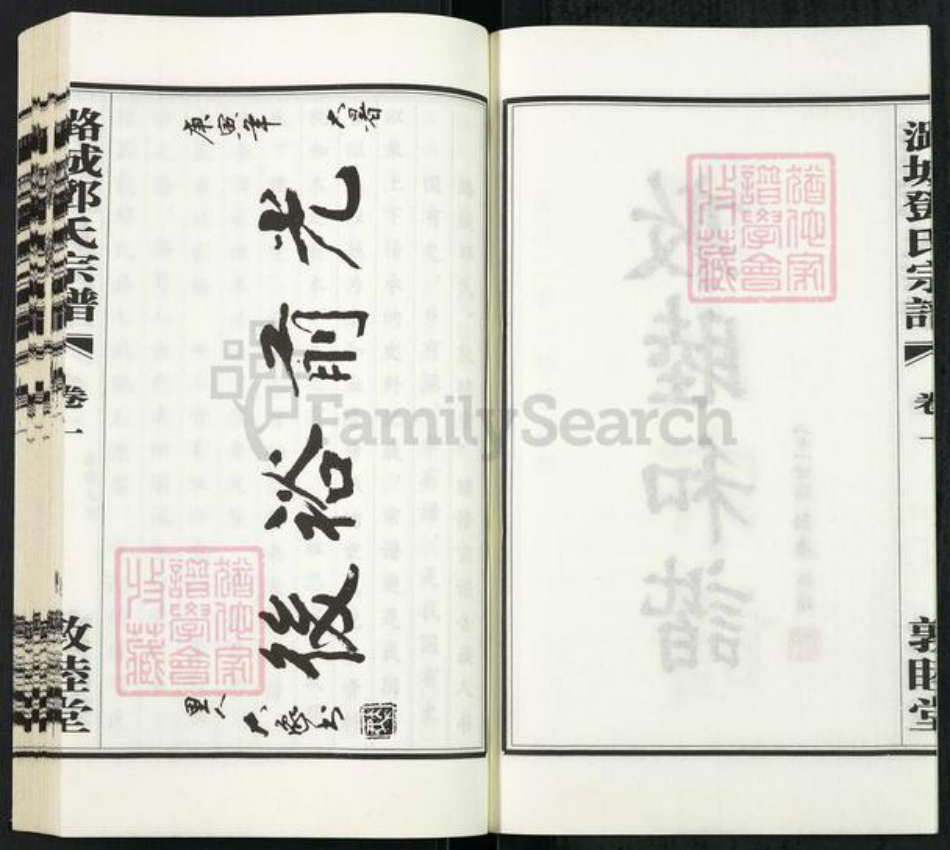 潞城鄧氏宗譜
卷一
敦睦堂
猶他家
譜學會
收藏
庚寅年
大暑
光前裕後
里人
猶他家
譜學會
收藏
潞城鄧氏宗譜
卷一
敦睦堂
FamilySearch